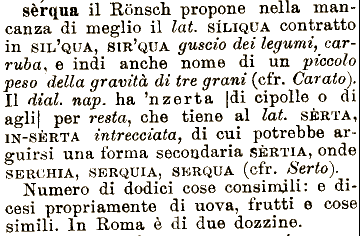 sèrqua il Rönsch propone nella man-
canza di meglio il lat. SÍLIQUA contratto
in SIL'QUA, SIR'QUA guscio dei legumi, car-
ruba, e indi anche nome di un piccolo
peso della gravità di tre grani (cfr. Carato).
Il dial. nap. ha 'nzerta |di cipolle o di
agli| per resta, che tiene al lat. SÈRTA,
IN-SÈRTA intrecciata, di cui potrebbe ar-
guirsi una forma secondaria SÈRTIA, onde
SERCHIA, SERQUIA, SERQUA (cfr. Serto).
Numero di dodici cose consimili: e di-
cesi propriamente di uova, frutti e cose
simili. In Roma è di due dozzine.